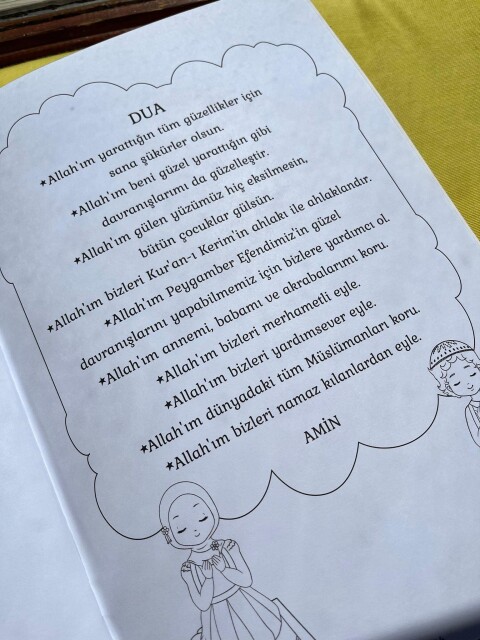 DUA
★Allah'ım yarattığın tüm güzellikler için
sana şükürler olsun.
★Allah'ım beni güzel yarattığın gibi
davranışlarımı da güzelleştir.
★Allah'ım gülen yüzümüz hiç eksilmesin,
bütün çocuklar gülsün.
★Allah'ım bizleri Kur'an-ı Kerim'in ahlakı ile ahlaklandır.
★Allah'ım Peygamber Efendimiz'in güzel
davranışlarını yapabilmemiz için bizlere yardımcı ol.
★Allah'ım annemi, babamı ve akrabalarımı koru.
★Allah'ım bizleri merhametli eyle.
★Allah'ım bizleri yardımsever eyle.
★Allah'ım dünyadaki tüm Müslümanları koru.
★Allah'ım bizleri namaz kılanlardan eyle.
AMİN